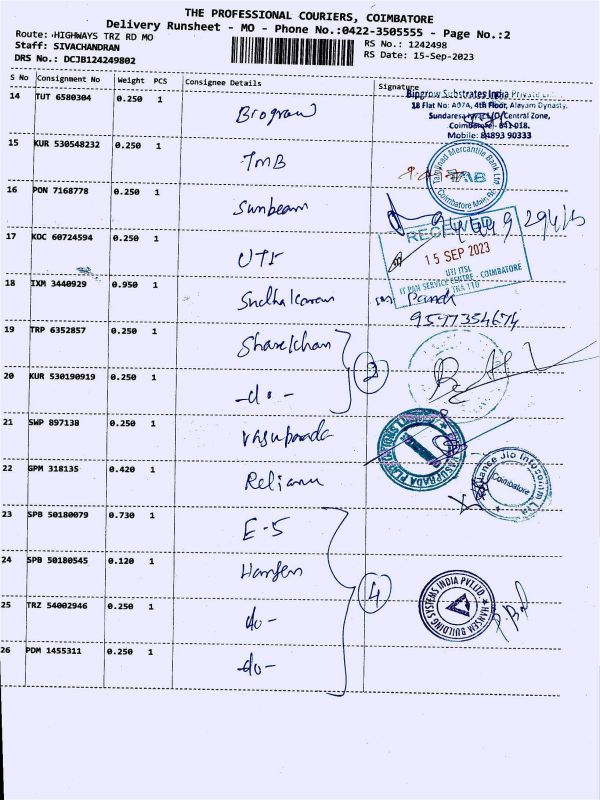 THE PROFESSIONAL COURIERS, COIMBATORE
Delivery Runsheet - MO - Phone No.:0422-3505555 - Page No.:2
Route: HIGHWAYS TRZ RD MO
RS No.: 1242498
Staff: SIVACHANDRAN
RS Date: 15-Sep-2023
DRS No.: DCJB124249802
S No Consignment No Weight PCS Consignee Details Signature
14 TUT 6580304 0.250 1 Biogrow
Bipgrow Substrates India Private
18 Flat No: A07A, 4th Floor, Alayam Dynasty,
Central Zone,
Coimbatore - 641 018.
Mobile: 84893 90333
15 KUR 530548232 0.250 1 TMB
Tamilnad Mercantile Bank Ltd
TMB
Coimbatore Main
16 PON 7168778 0.250 1 Sunbeam
17 KOC 60724594 0.250 1 UTI
RECEIVED
15 SEP 2023
UTI ITSL
IT PAN SERVICE CENTRE - COIMBATORE
TRA 110
18 IXM 3440929 0.950 1 Sudhakaran
19 TRP 6352857 0.250 1 Sharekhan
2
20 KUR 530190919 0.250 1 -do-
21 SWP 897138 0.250 1 Vasuprada
VASUPRADA PLANTATIONS LIMITED
22 GPM 318135 0.420 1 Reliance
Reliance Jio Infocomm Ltd
Coimbatore
23 SPB 50180079 0.730 1 E-5
24 SPB 50180545 0.120 1 Hansen
4
HANSEM BUILDING SYSTEMS INDIA PVT.LTD.
25 TRZ 54002946 0.250 1 -do-
26 PDM 1455311 0.250 1 -do-